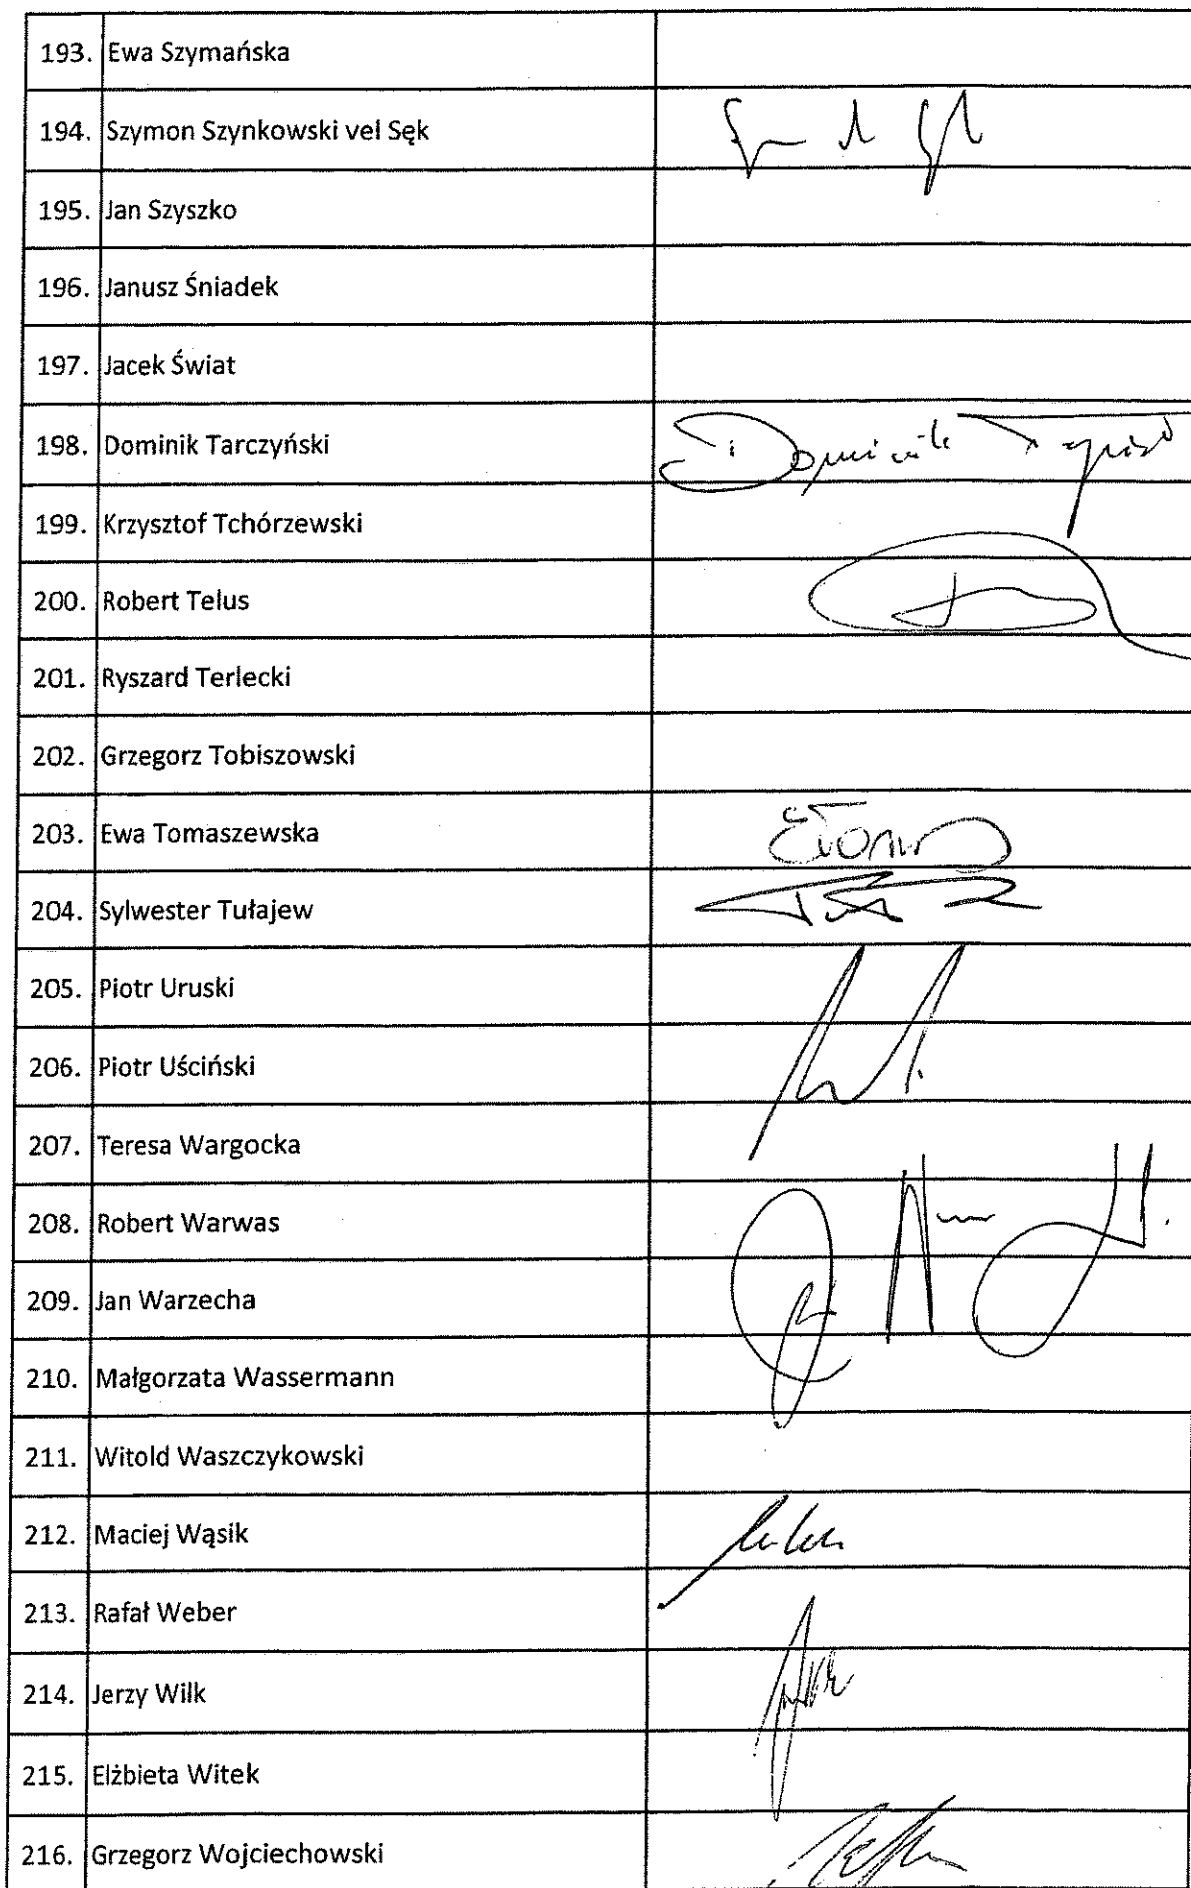 193. Ewa Szymańska
194. Szymon Szynkowski vel Sęk
195. Jan Szyszko
196. Janusz Śniadek
197. Jacek Świat
198. Dominik Tarczyński Dominik
199. Krzysztof Tchórzewski
200. Robert Telus
201. Ryszard Terlecki
202. Grzegorz Tobiszowski
203. Ewa Tomaszewska
204. Sylwester Tułajew
205. Piotr Uruski
206. Piotr Uściński
207. Teresa Wargocka
208. Robert Warwas
209. Jan Warzecha
210. Małgorzata Wassermann
211. Witold Waszczykowski
212. Maciej Wąsik
213. Rafał Weber
214. Jerzy Wilk
215. Elżbieta Witek
216. Grzegorz Wojciechowski